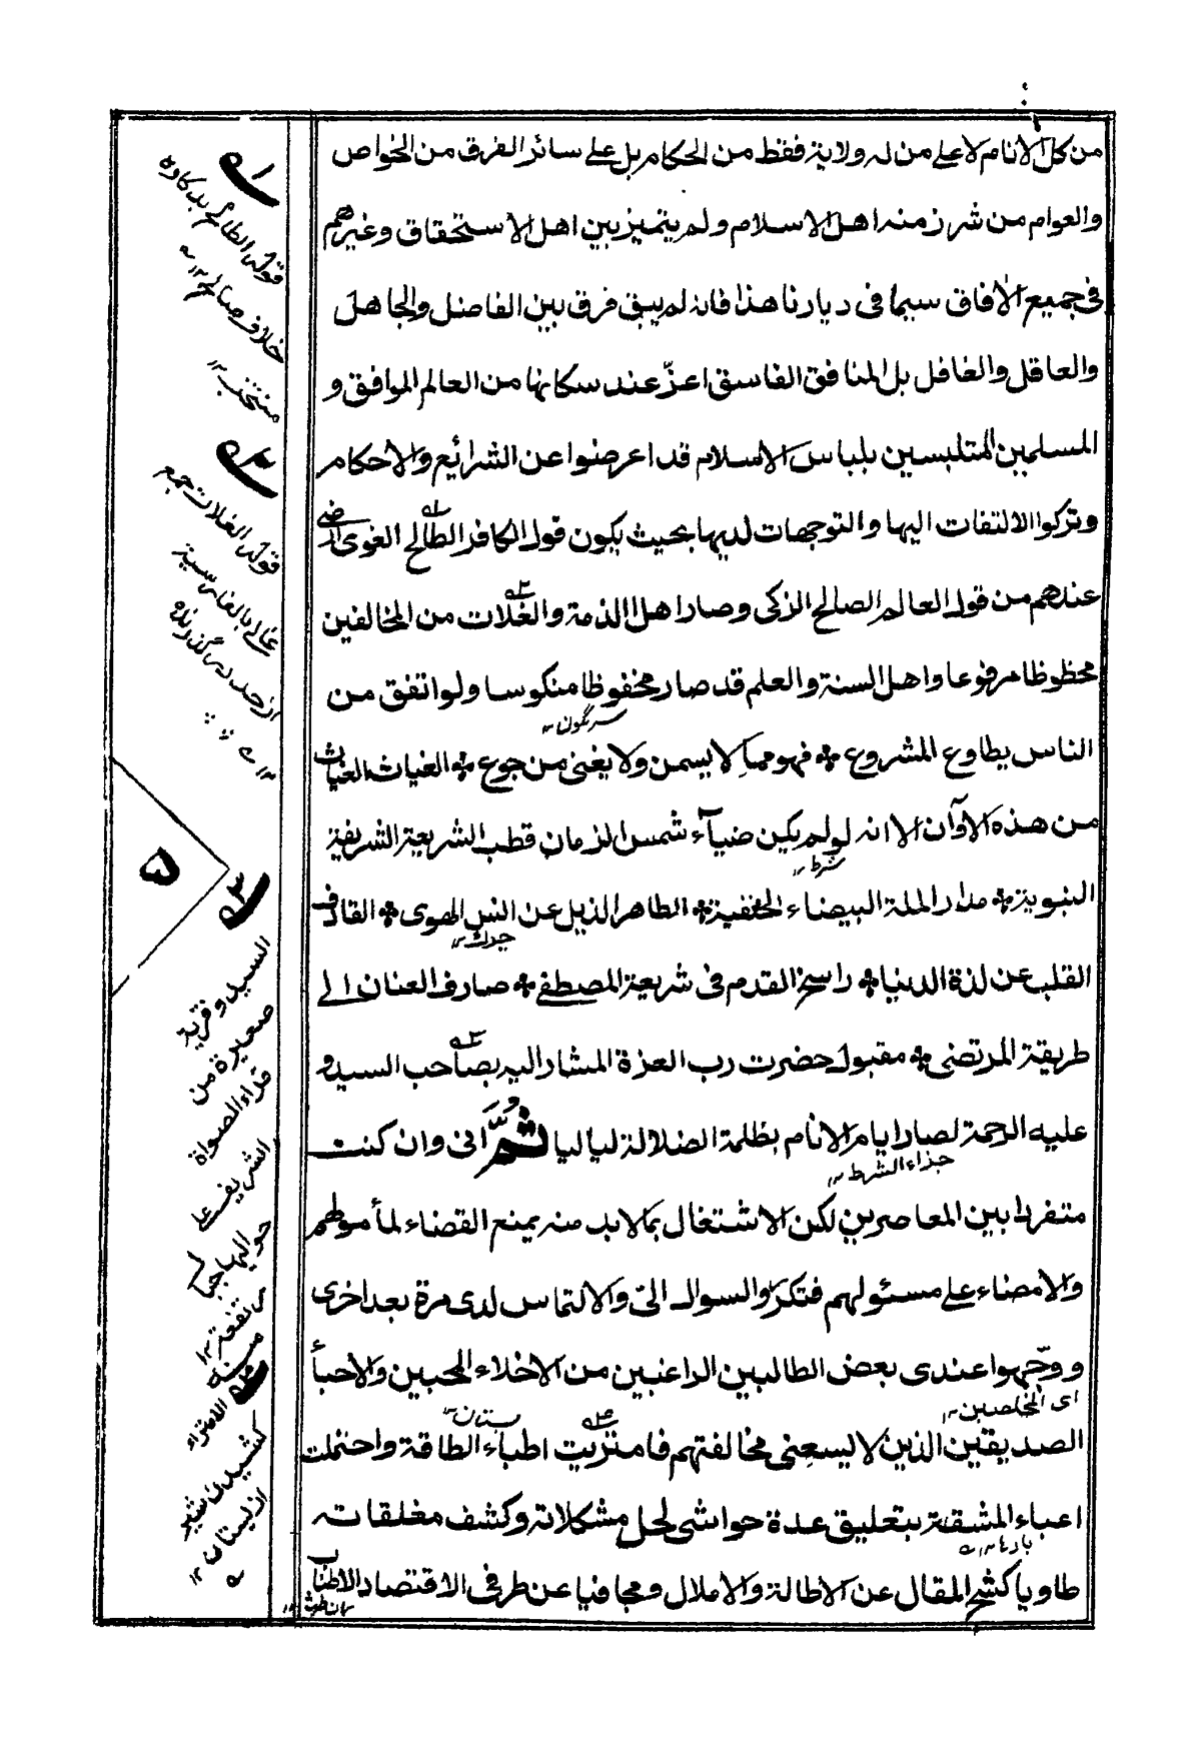 من كل الانام لا على من له ولاية فقط من الحكام بل على سائر الفرق من الخواص
والعوام من شرذمنه اهل الاسلام ولم يتميز بين اهل الاستحقاق وغيرهم
فى جميع الافاق سيما فى ديارنا هذا فانه لم يبق فرق بين الفاضل والجاهل
والعاقل والغافل بل المنافق الفاسق اعزّ عند سكانها من العالم الموافق و
المسلمين المتلبسين بلباس الاسلام قد اعرضوا عن الشرائع والاحكام
وتركوا الالتفات اليها والتوجهات لديها بحيث يكون قول الكافر الطالح الغوى ارضى
عندهم من قول العالم الصالح الزكى وصار اهل الذمة والغلات من المخالفين
محظوظا مرفوعا واهل السنة والعلم قد صار مخفوظا منكوسا ولو اتفق من
سرنگون ١٢
الناس يطاوع المشروع فهو مما لا يسمن ولا يغنى من جوع الغياث الغياث
من هذه الاوآن الا انه لو لم يكن ضيآء شمس الزمان قطب الشريعة الشريفة
شرط ١٢
النبوية مدار الملة البيضاء الحنفية الطاهر الذيل عن الهوى القاذف
القلب عن لذة الدنيا راسخ القدم فى شريعة المصطفى صارف العنان الى
طريقة المرتضى مقبول حضرت رب العزة المشار اليه بصاحب السيد و
عليه الرحمة لصار ايام الانام بظلمة الضلالة لياليا ثُمَّ انى وان كنت
جزاء الشرط ١٢
متفردا بين المعاصرين لكن الاشتغال بما لابد منه يمنع القضاء لمأمولهم
والامضاء على مسئولهم فتكرّوا السوال الىّ والالتماس لدى مرة بعد اخرى
ووجّهوا عندى بعض الطالبين الراغبين من الاخلاء المحبين والاحبأ
اى المخلصين ١٢
الصديقين الذين لا يسعنى مخالفتهم فامتريت اطباء الطاقة واحتملت
پستان ١٢
اعباء المشقة بتعليق عدة حواشى لحل مشكلاته وكشف مغلقاته
بارها ١٢
طاويا كشح المقال عن الاطالة والاملال ومجافيا عن طرفى الاقتصاد الاطناب
١
قوله الطالح بدكاره
خلاف صالح ١٢
منتخب ١٢
٢
قوله الغلات جمع
غالى بالفارسية
از حد در گذرنده
١٢
۵
٣
السيدو قرية
صغيرة من
قراء الصواة
الشريف على
مرتفعة ١٢
منه
٤
الامتراء
كشيدن شير
از پستان ١٢